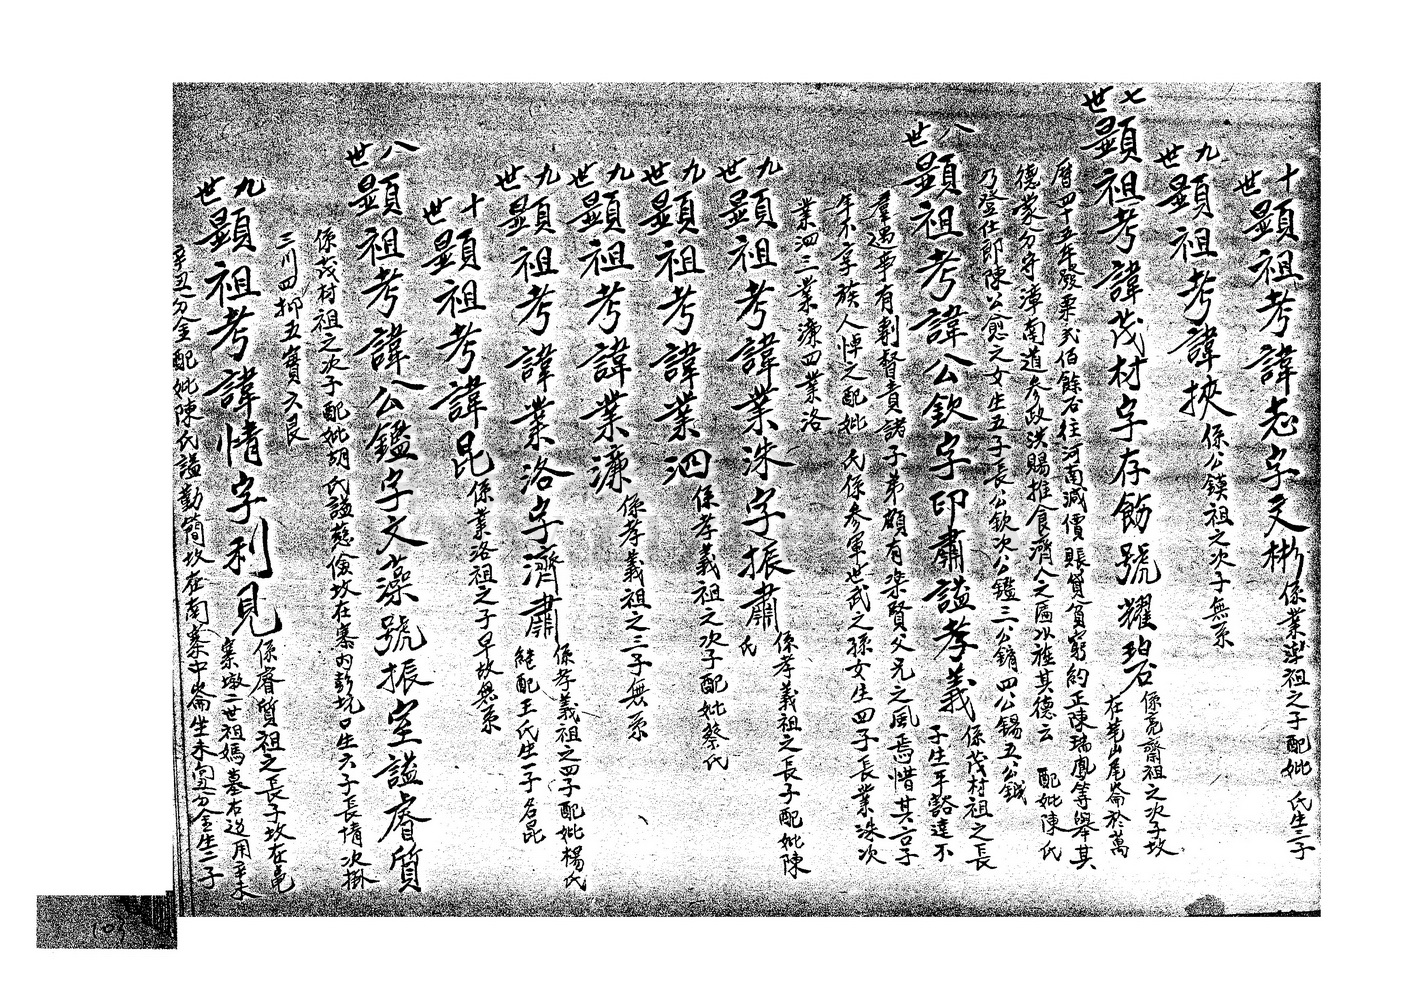 十世顯祖考諱志字文彬係業準祖之子配妣 氏生三子
九世顯祖考諱挾係公鏌祖之次子無系
七世顯祖考諱茂材字存飭號耀碧係亮齋祖之次子坟
在笔山尾崙於萬
曆四十五年發粟弍伯餘石往河南減價賬貸貧窮約正陳瑞鳳等舉其
德蒙分守漳南道參政洪賜推食濟人之匾以旌其德云 配妣陳氏
乃登仕郎陳公愈之女生五子長公欽次公鑑三公錥四公錫五公鉞
八世顯祖考諱公欽字印肅謚孝義係茂材祖之長
子生平豁達不
羣遇事有剸督責諸子弟頗有榮賢父兄之風焉惜其言子
年不享族人悼之配妣 氏係參軍世武之孫女生四子長業洙次
業泗三業濂四業洛
九世顯祖考諱業洙字振肅係孝義祖之長子配妣陳
氏
九世顯祖考諱業泗係孝義祖之次子配妣蔡氏
九世顯祖考諱業濂係孝義祖之三子無系
九世顯祖考諱業洛字濟肅係孝義祖之四子配妣楊氏
継配王氏生一子名昆
十世顯祖考諱昆係業洛祖之子早故無系
八世顯祖考諱公鑑字文藻號振室謚睿質
係茂材祖之次子配妣胡氏謚慈儉坟在寨內彭坑口生六子長情次掛
三川四抑五實六良
九世顯祖考諱情字利見係睿質祖之長子坟在亀
寨墩二世祖媽墓右邊用辛未
辛丑分金配妣陳氏謚勤簡坟在南寨中崙坐未向丑分金生二子
103